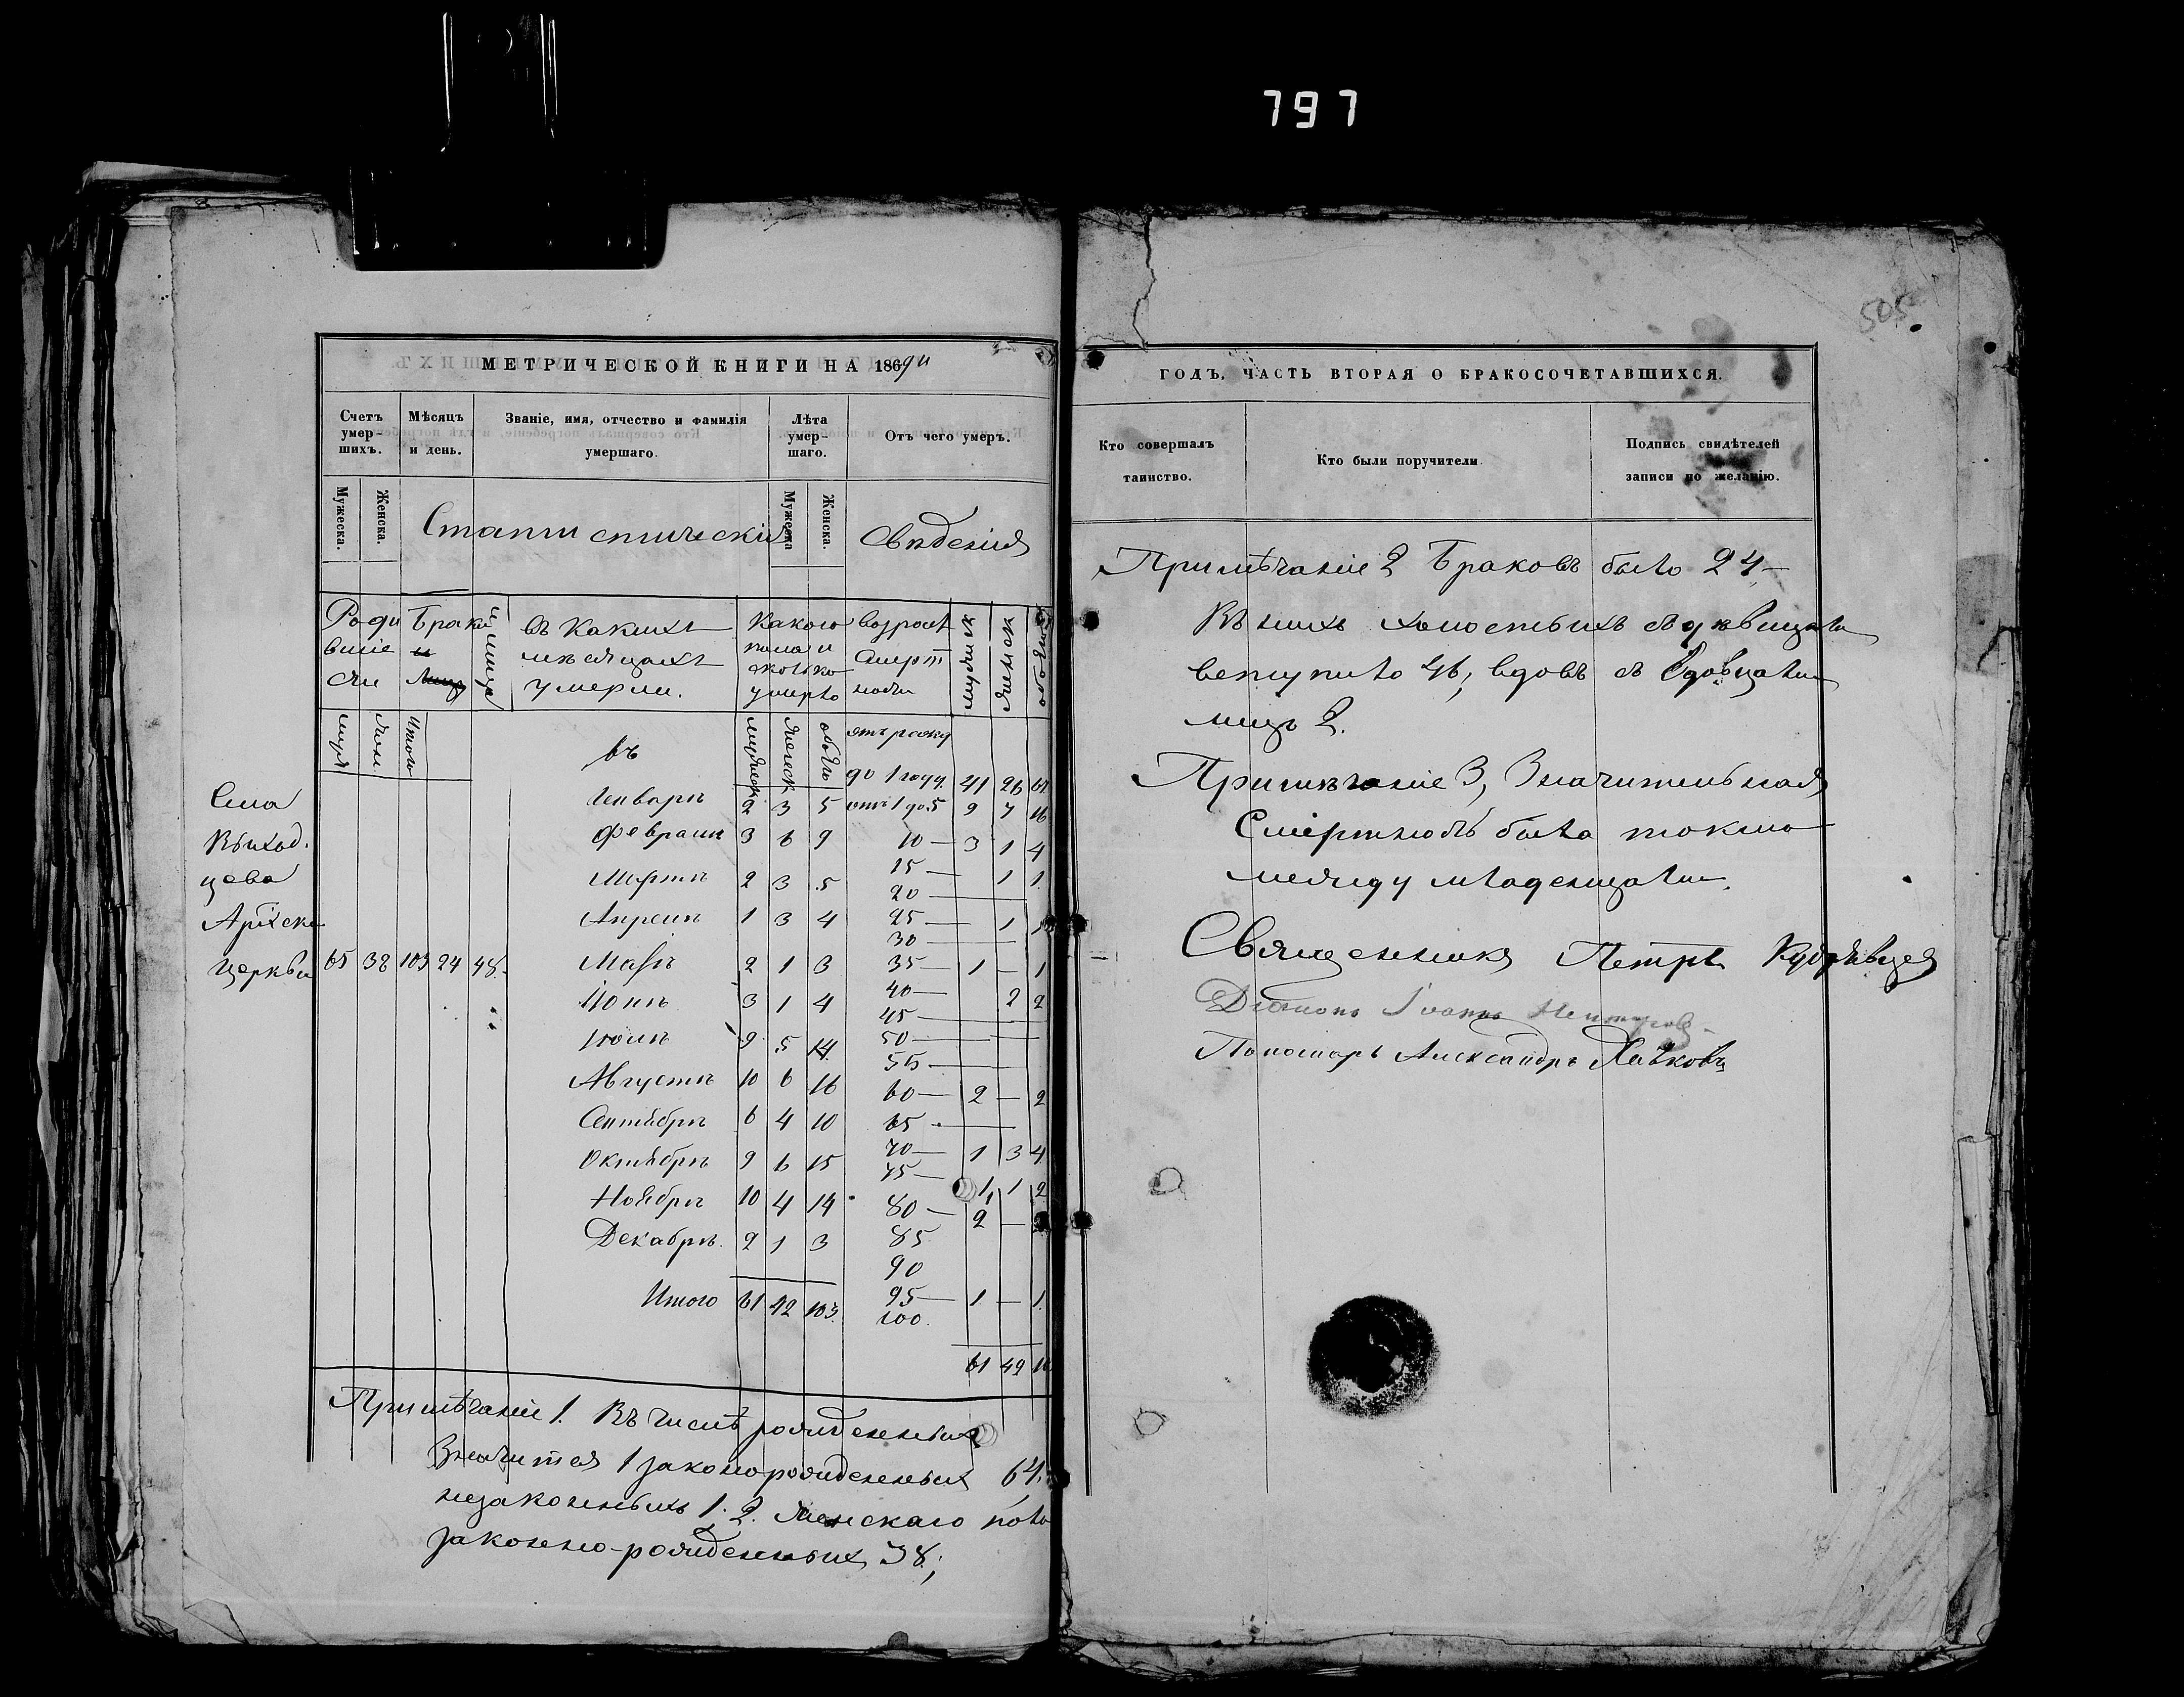 797
505
МЕТРИЧЕСКОЙ КНИГИ НА 1869й
Счетъ умер-шихъ.
Мѣсяцъ и день.
Званіе, имя, отчество и фамилія умершаго.
Лѣта умер-шаго.
Отъ чего умеръ.
Мужеска.
Женска.
Мужеска
Женска.
Статистическія Свѣденія
Родившіеся
Браки и
лица
въ какихъ мѣсяцахъ умерли.
какого пола и сколько умерло
возрастъ смертности
мужеск
женск
обоего
муж
жен.
Итого
въ
мужеск
женск
обоего
отъ рожд
до 1 году 41 26 67
Генварѣ 2 3 5 отъ 1 до 5 9 7 16
Февралѣ 3 6 9
10 — 3 1 4
Мартѣ 2 3 5
15 — 1 1
20 —
Апрелѣ 1 3 4
25 — 1 1
30 —
Маѣ 2 1 3
35 — 1 — 1
Іюнѣ 3 1 4
40 — 2 2
45 —
Іюлѣ 9 5 14
50 —
55 —
Августѣ 10 6 16
60 — 2 — 2
Сентябрѣ 6 4 10
65 —
Октябрѣ 9 6 15
70 — 1 3 4
75 — 1 1 2
Ноябрѣ 10 4 14
80 — 2 — 2
Декабрѣ 2 1 3
85
90
Итого 61 42 103
95 — 1 — 1
100.
61 42
Села
Выход.
цева
Церкви 65 38 103 24 48.
Примѣчаніе 1. Въ числѣ рожденныхъ
значится 1 законорожденныхъ 64,
незаконныхъ 1. 2. женскаго пола
законно-рожденныхъ 38;
ГОДЪ, ЧАСТЬ ВТОРАЯ О БРАКОСОЧЕТАВШИХСЯ.
Кто совершалъ таинство.
Кто были поручители
Подпись свидѣтелей записи по желанію.
Примѣчаніе 2 Браковъ было 24 —
Въ нихъ холостыхъ съ дѣвицами
вступило 46, вдовъ съ вдовцами
лицъ 2.
Примѣчаніе 3, Значительная
Смертность была токмо
между младенцами.
Священникъ Петръ Кудрявцев
Діаконъ Іоаннъ
Пономарь Александръ